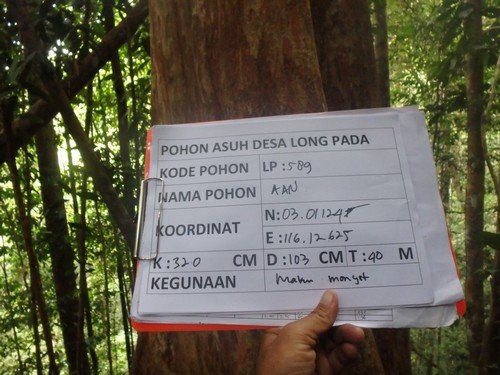 POHON ASUH DESA LONG PADA
KODE POHON LP : 589
NAMA POHON AAN
KOORDINAT N: 03.01124
E : 116.12625
K : 320 CM D : 103 CM T : 40 M
KEGUNAAN monyet